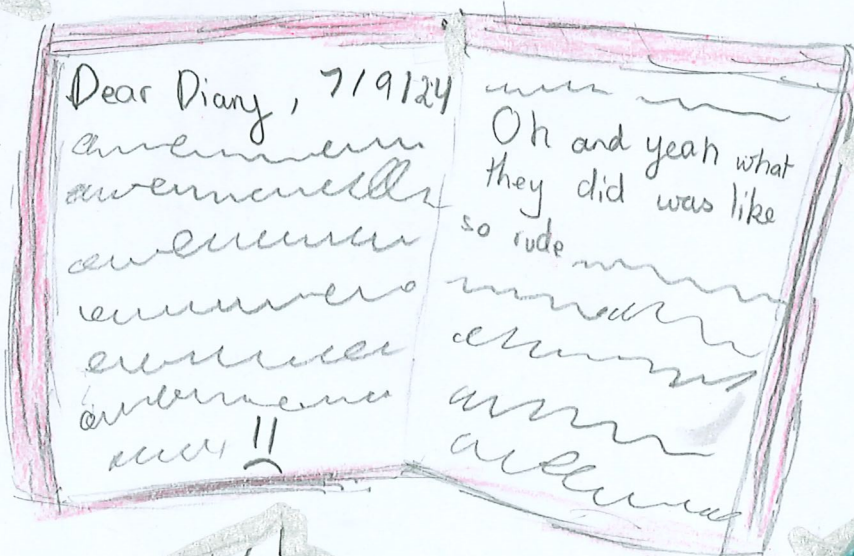 Dear Diary, 7/9/24
Oh and yeah what
they did was like
so rude